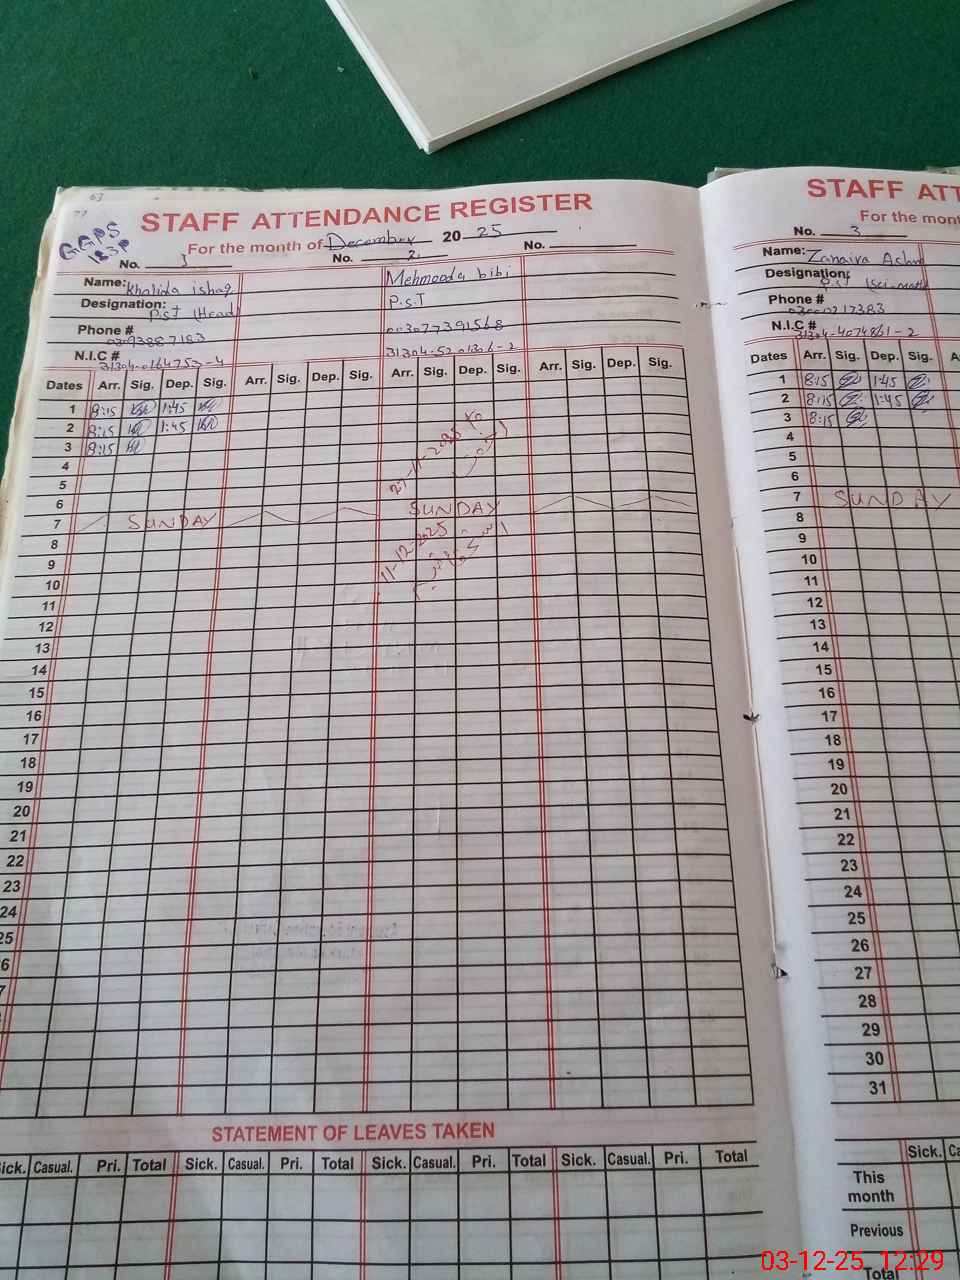 63
77
GGPS
123P
STAFF ATTENDANCE REGISTER
For the month of December 2025
No. 1 No. 2. No.
Name: Khalida ishaq Mehmooda bibi
Designation: P.S.T (Head) P.S.T
Phone # 03093887183 003077391568
N.I.C # 31304-0164753-4 31304-5201306-2
Dates Arr. Sig. Dep. Sig. Arr. Sig. Dep. Sig. Arr. Sig. Dep. Sig. Arr. Sig. Dep. Sig.
1 8:15 1:45
2 8:15 1:45
3 8:15
4
5
27-11-2025
6
7 SUNDAY SUNDAY
8
11-12-2025
9
10
11
12
13
14
15
16
17
18
19
20
21
22
23
24
25
6
7
STATEMENT OF LEAVES TAKEN
Sick. Casual. Pri. Total Sick. Casual. Pri. Total Sick. Casual. Pri. Total Sick. Casual. Pri. Total
STAFF ATT
For the mont
No. 3
Name: Zanaira
Designation: P.S.T (Sci-math)
Phone #
N.I.C # 31304-4074861-2
Dates Arr. Sig. Dep. Sig. A
1 8:15 1:45
2 8:15 1:45
3 8:15
4
5
6
7 SUNDAY
8
9
10
11
12
13
14
15
16
17
18
19
20
21
22
23
24
25
26
27
28
29
30
31
Sick. Ca
This
month
Previous
Total
03-12-25 12:29